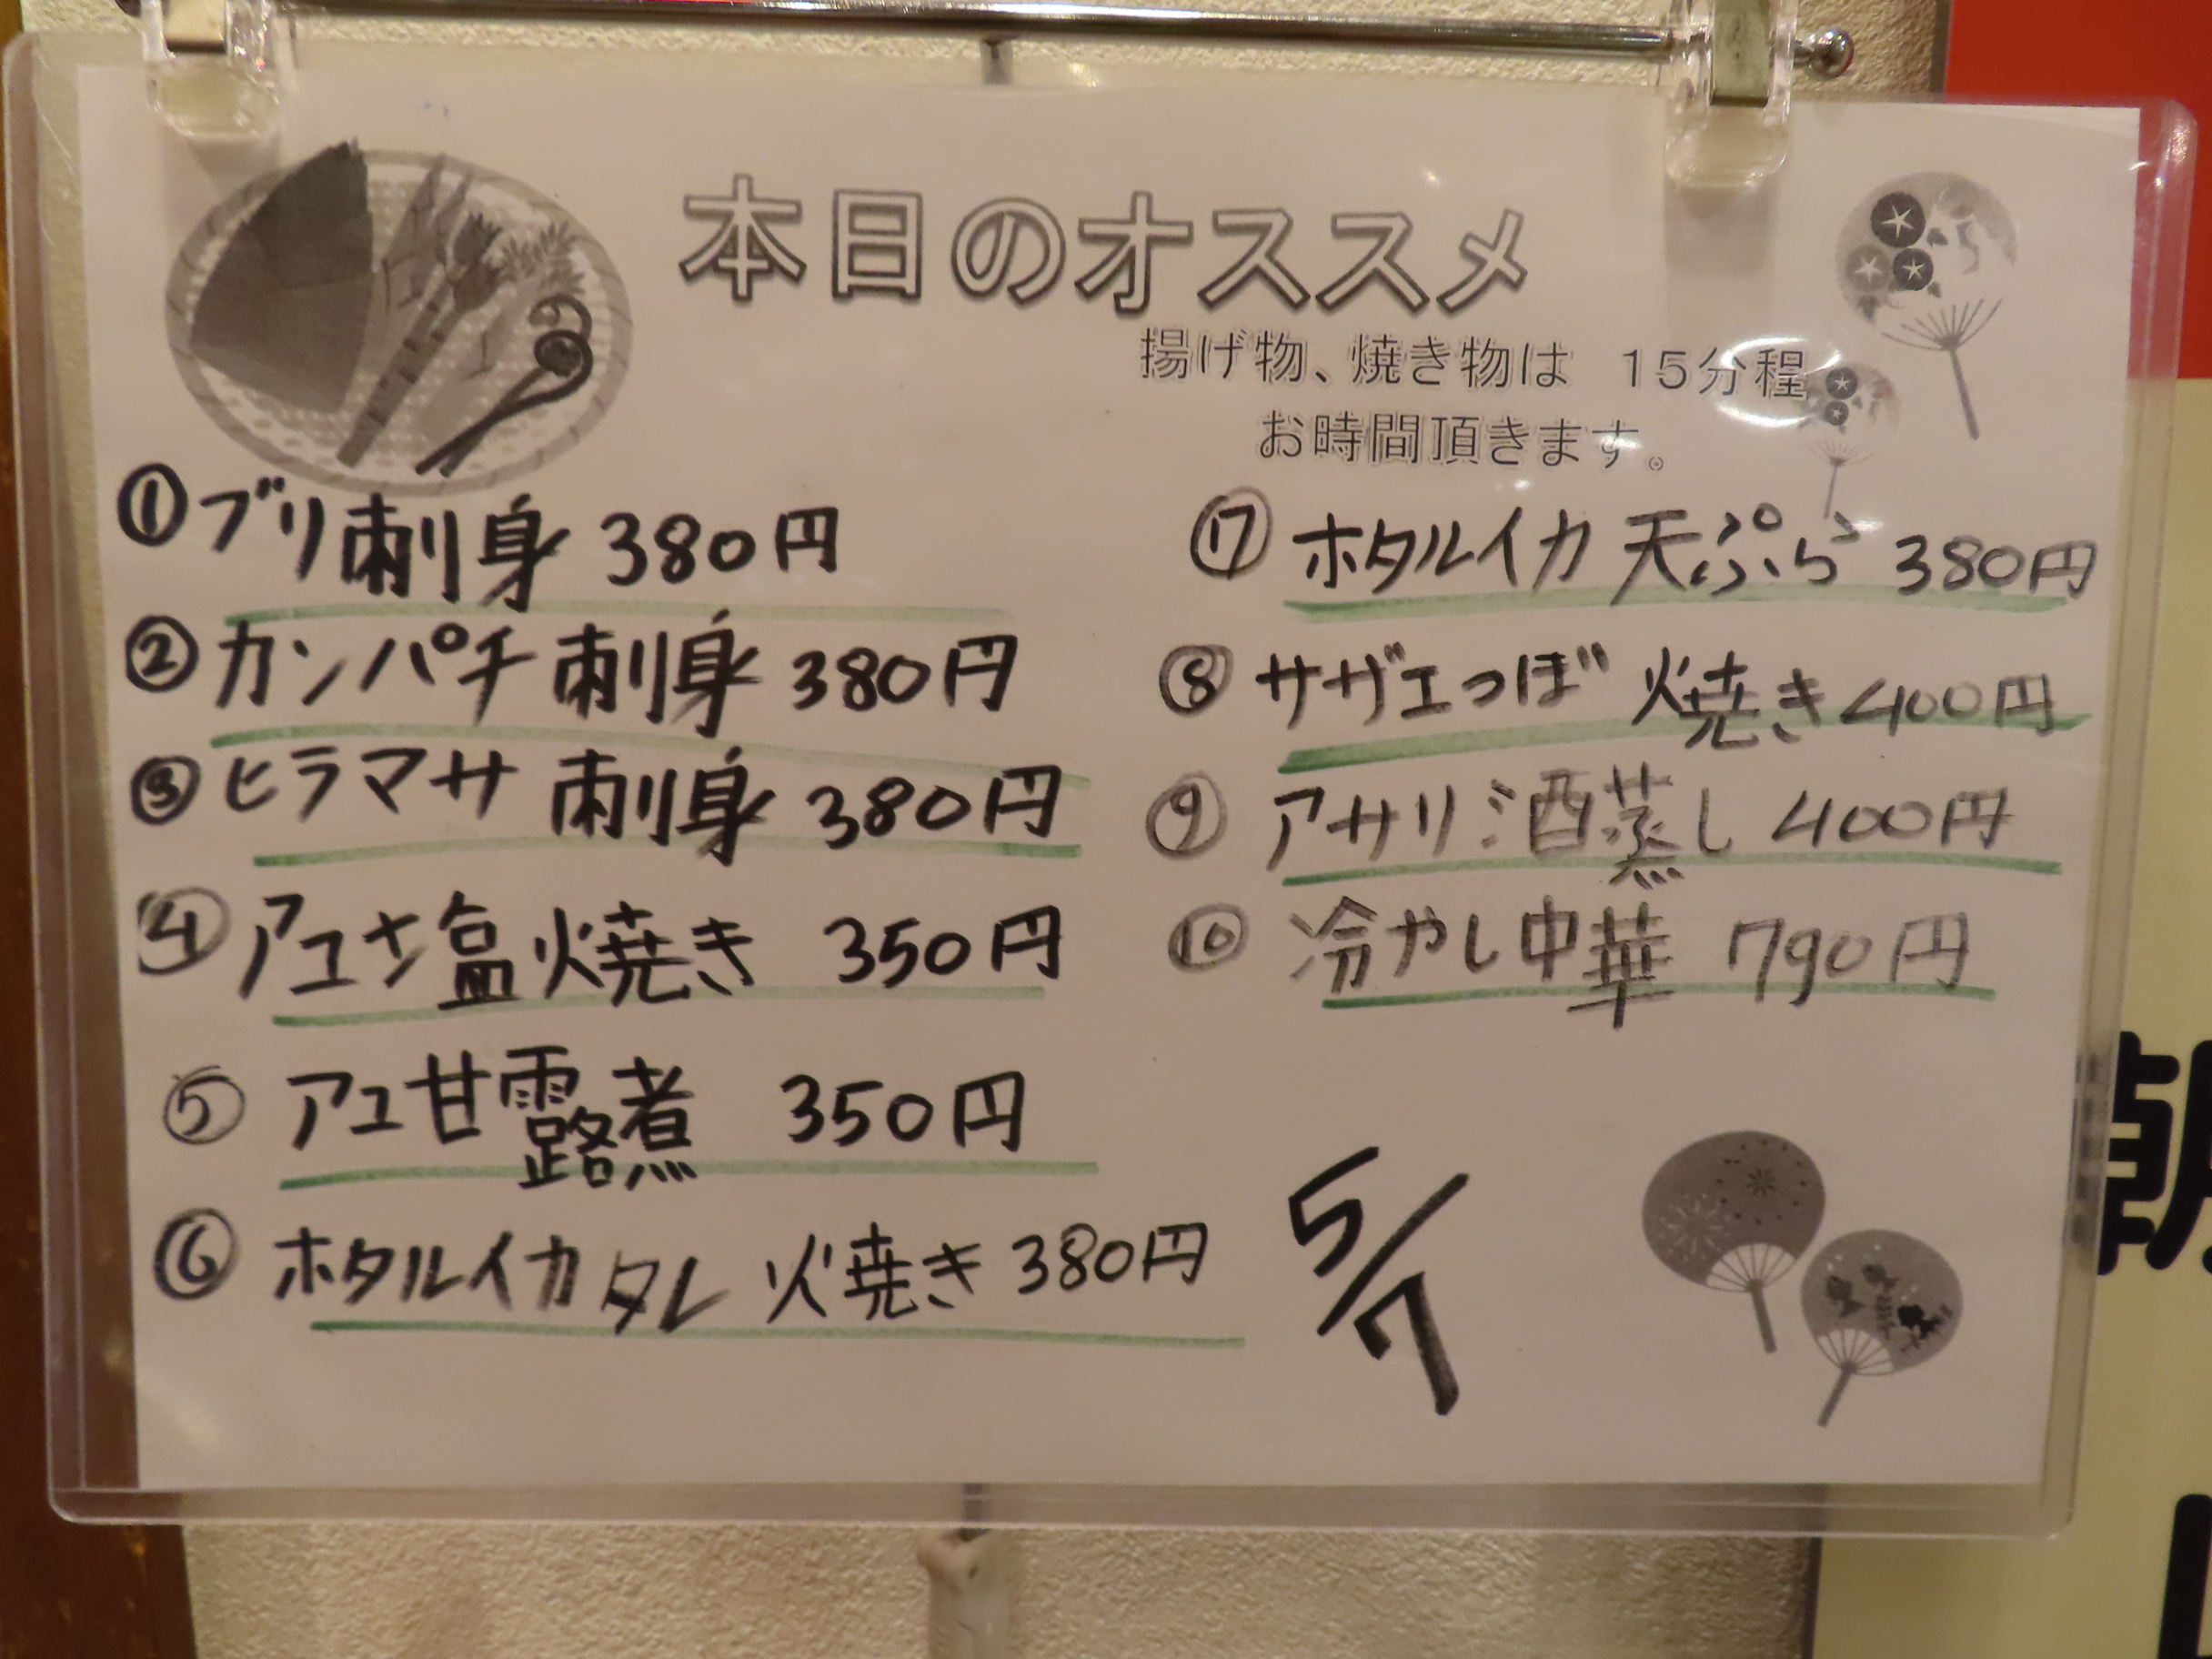 本日のオススメ
揚げ物、焼き物は 15分程
お時間頂きます。
①ブリ刺身 380円
②カンパチ刺身 380円
③ヒラマサ刺身 380円
④アユ塩焼き 350円
⑤アユ甘露煮 350円
⑥ホタルイカタレ焼き 380円
⑦ホタルイカ天ぷら 380円
⑧サザエつぼ焼き 400円
⑨アサリ酒蒸し 400円
⑩冷やし中華 790円
5/7
朝